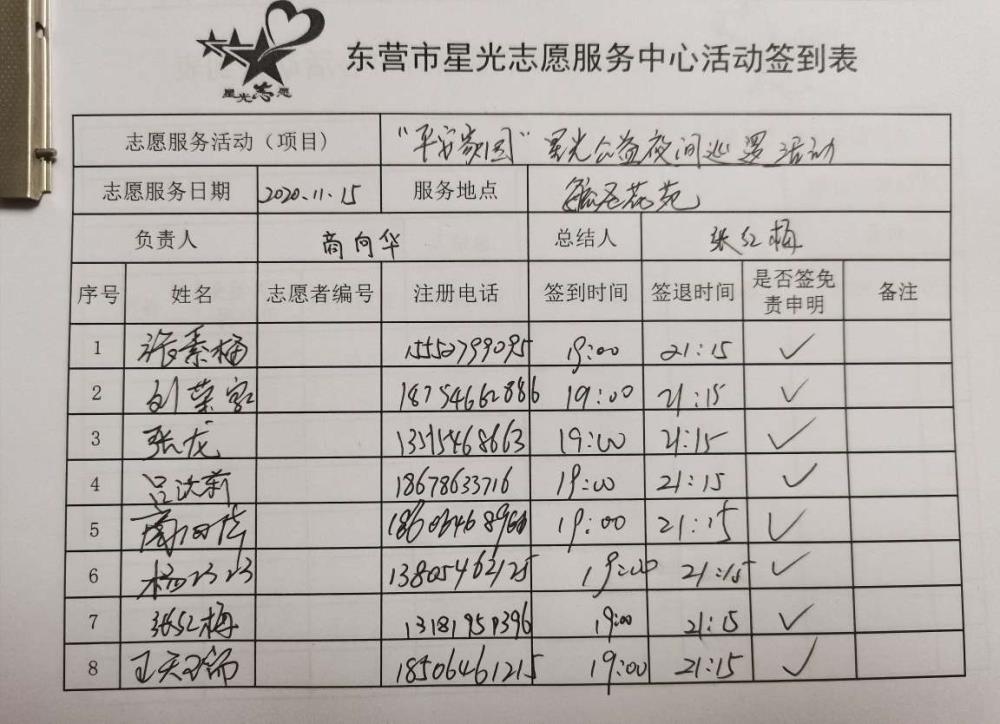 星光志愿
东营市星光志愿服务中心活动签到表
志愿服务活动（项目） "平安家园"星光公益夜间巡逻活动
志愿服务日期 2020.11.15 服务地点 花苑
负责人 商向华 总结人 张红梅
序号 姓名 志愿者编号 注册电话 签到时间 签退时间 是否签免责申明 备注
1 张素梅 15552799095 19:00 21:15 ✓
2 18754662886 19:00 21:15 ✓
3 张龙 19:00 21:15 ✓
4 18678633716 19:00 21:15 ✓
5 19:00 21:15 ✓
6 13805462125 19:00 21:15 ✓
7 张红梅 13181959396 19:00 21:15 ✓
8 18506461215 19:00 21:15 ✓